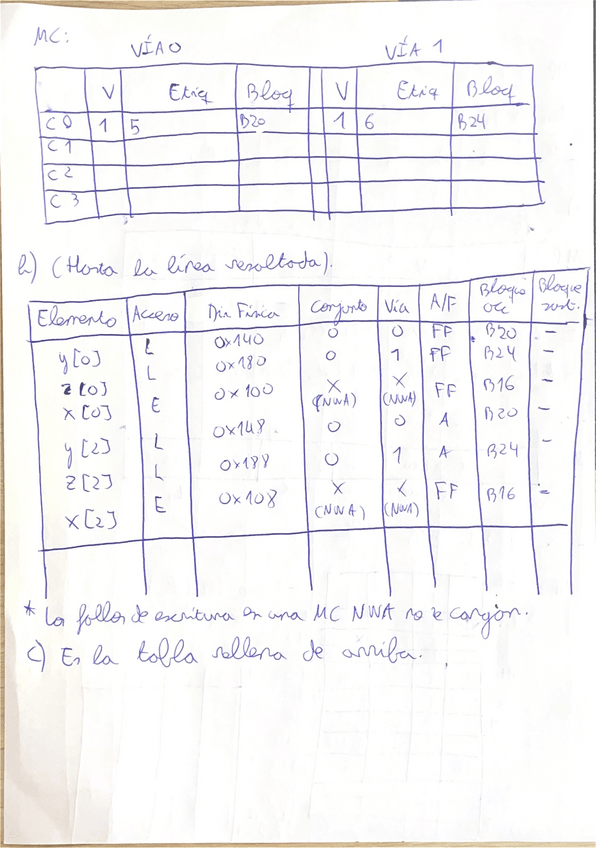 MC:
VÍA 0 VÍA 1
V Etiq Bloq V Etiq Bloq
C 0 1 5 B20 1 6 B24
C 1
C 2
C 3
b) (Hasta la línea resaltada).
Elemento Acceso Dir. Física Conjunto Vía A/F Bloque Bloque sust.
y[0] L 0x140 0 0 FF B20 -
z[0] L 0x180 0 1 FF B24 -
x[0] E 0x100 X (NWA) X (NWA) FF B16 -
y[2] L 0x148 0 0 A B20 -
z[2] L 0x188 0 1 A B24
x[2] E 0x108 X (NWA) X (NWA) FF B16 -
* Los fallos de escritura en una MC NWA no se cargan.
c) Es la tabla rellena de arriba.